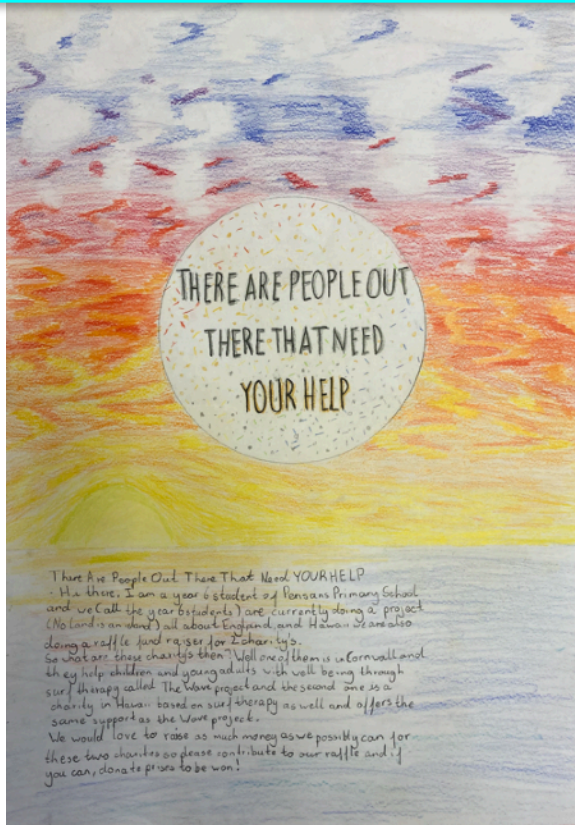 THERE ARE PEOPLE OUT
THERE THAT NEED
YOUR HELP
There Are People Out There That Need YOUR HELP
- Hi there, I am a year 6 student of Pensans Primary School
and we (all the year 6 students) are currently doing a project
(No land is an island) all about England and Hawaii we are also
doing a raffle fund raiser for 2 charity's.
So what are these charity's then? Well one of them is in Cornwall and
they help children and young adults with well being through
surf therapy called The Wave project and the second one is a
charity in Hawaii based on surf therapy as well and offers the
same support as the Wave project.
We would love to raise as much money as we possibly can for
these two charites so please contribute to our raffle and if
you can, donate prises to be won!